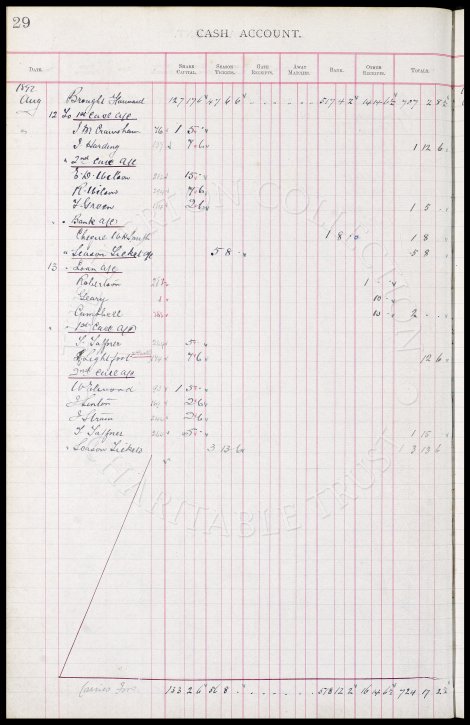 29
CASH ACCOUNT.
DATE. SHARE CAPITAL. SEASON TICKETS. GATE RECEIPTS. AWAY MATCHES. BANK. OTHER RECEIPTS. TOTALS.
1892
Aug Brought Forward 127 17 6 47 6 6 517 4 2 14 14 6½ 707 2 8½
12 To 1st Call a/c
J M Crawshaw 1 5 -
J. Harding 7 6 1 12 6
" 2nd Call a/c
E. D. Wilson 15 -
R. Wilson 7 6
T Green 2 6 1 5 -
" Bank a/c
Cheque Smith 1 8 1 8
" Season Ticket a/c 5 8 5 8
13 " Loan a/c
Robertson 1
Geary 10
Campbell 10 2
" 1st Call a/c
T. 5 -
Lightfoot 7 6 12 6
2nd Call a/c
1 5 -
J Linton 2 6
J Strain 2 6
T. 5 - 1 15
" Season Tickets 3 13 6 3 13 6
Carried For. 133 2 6 56 8 578 12 2 16 14 6½ 724 17 2½
CHARITABLE TRUST
COLLECTION